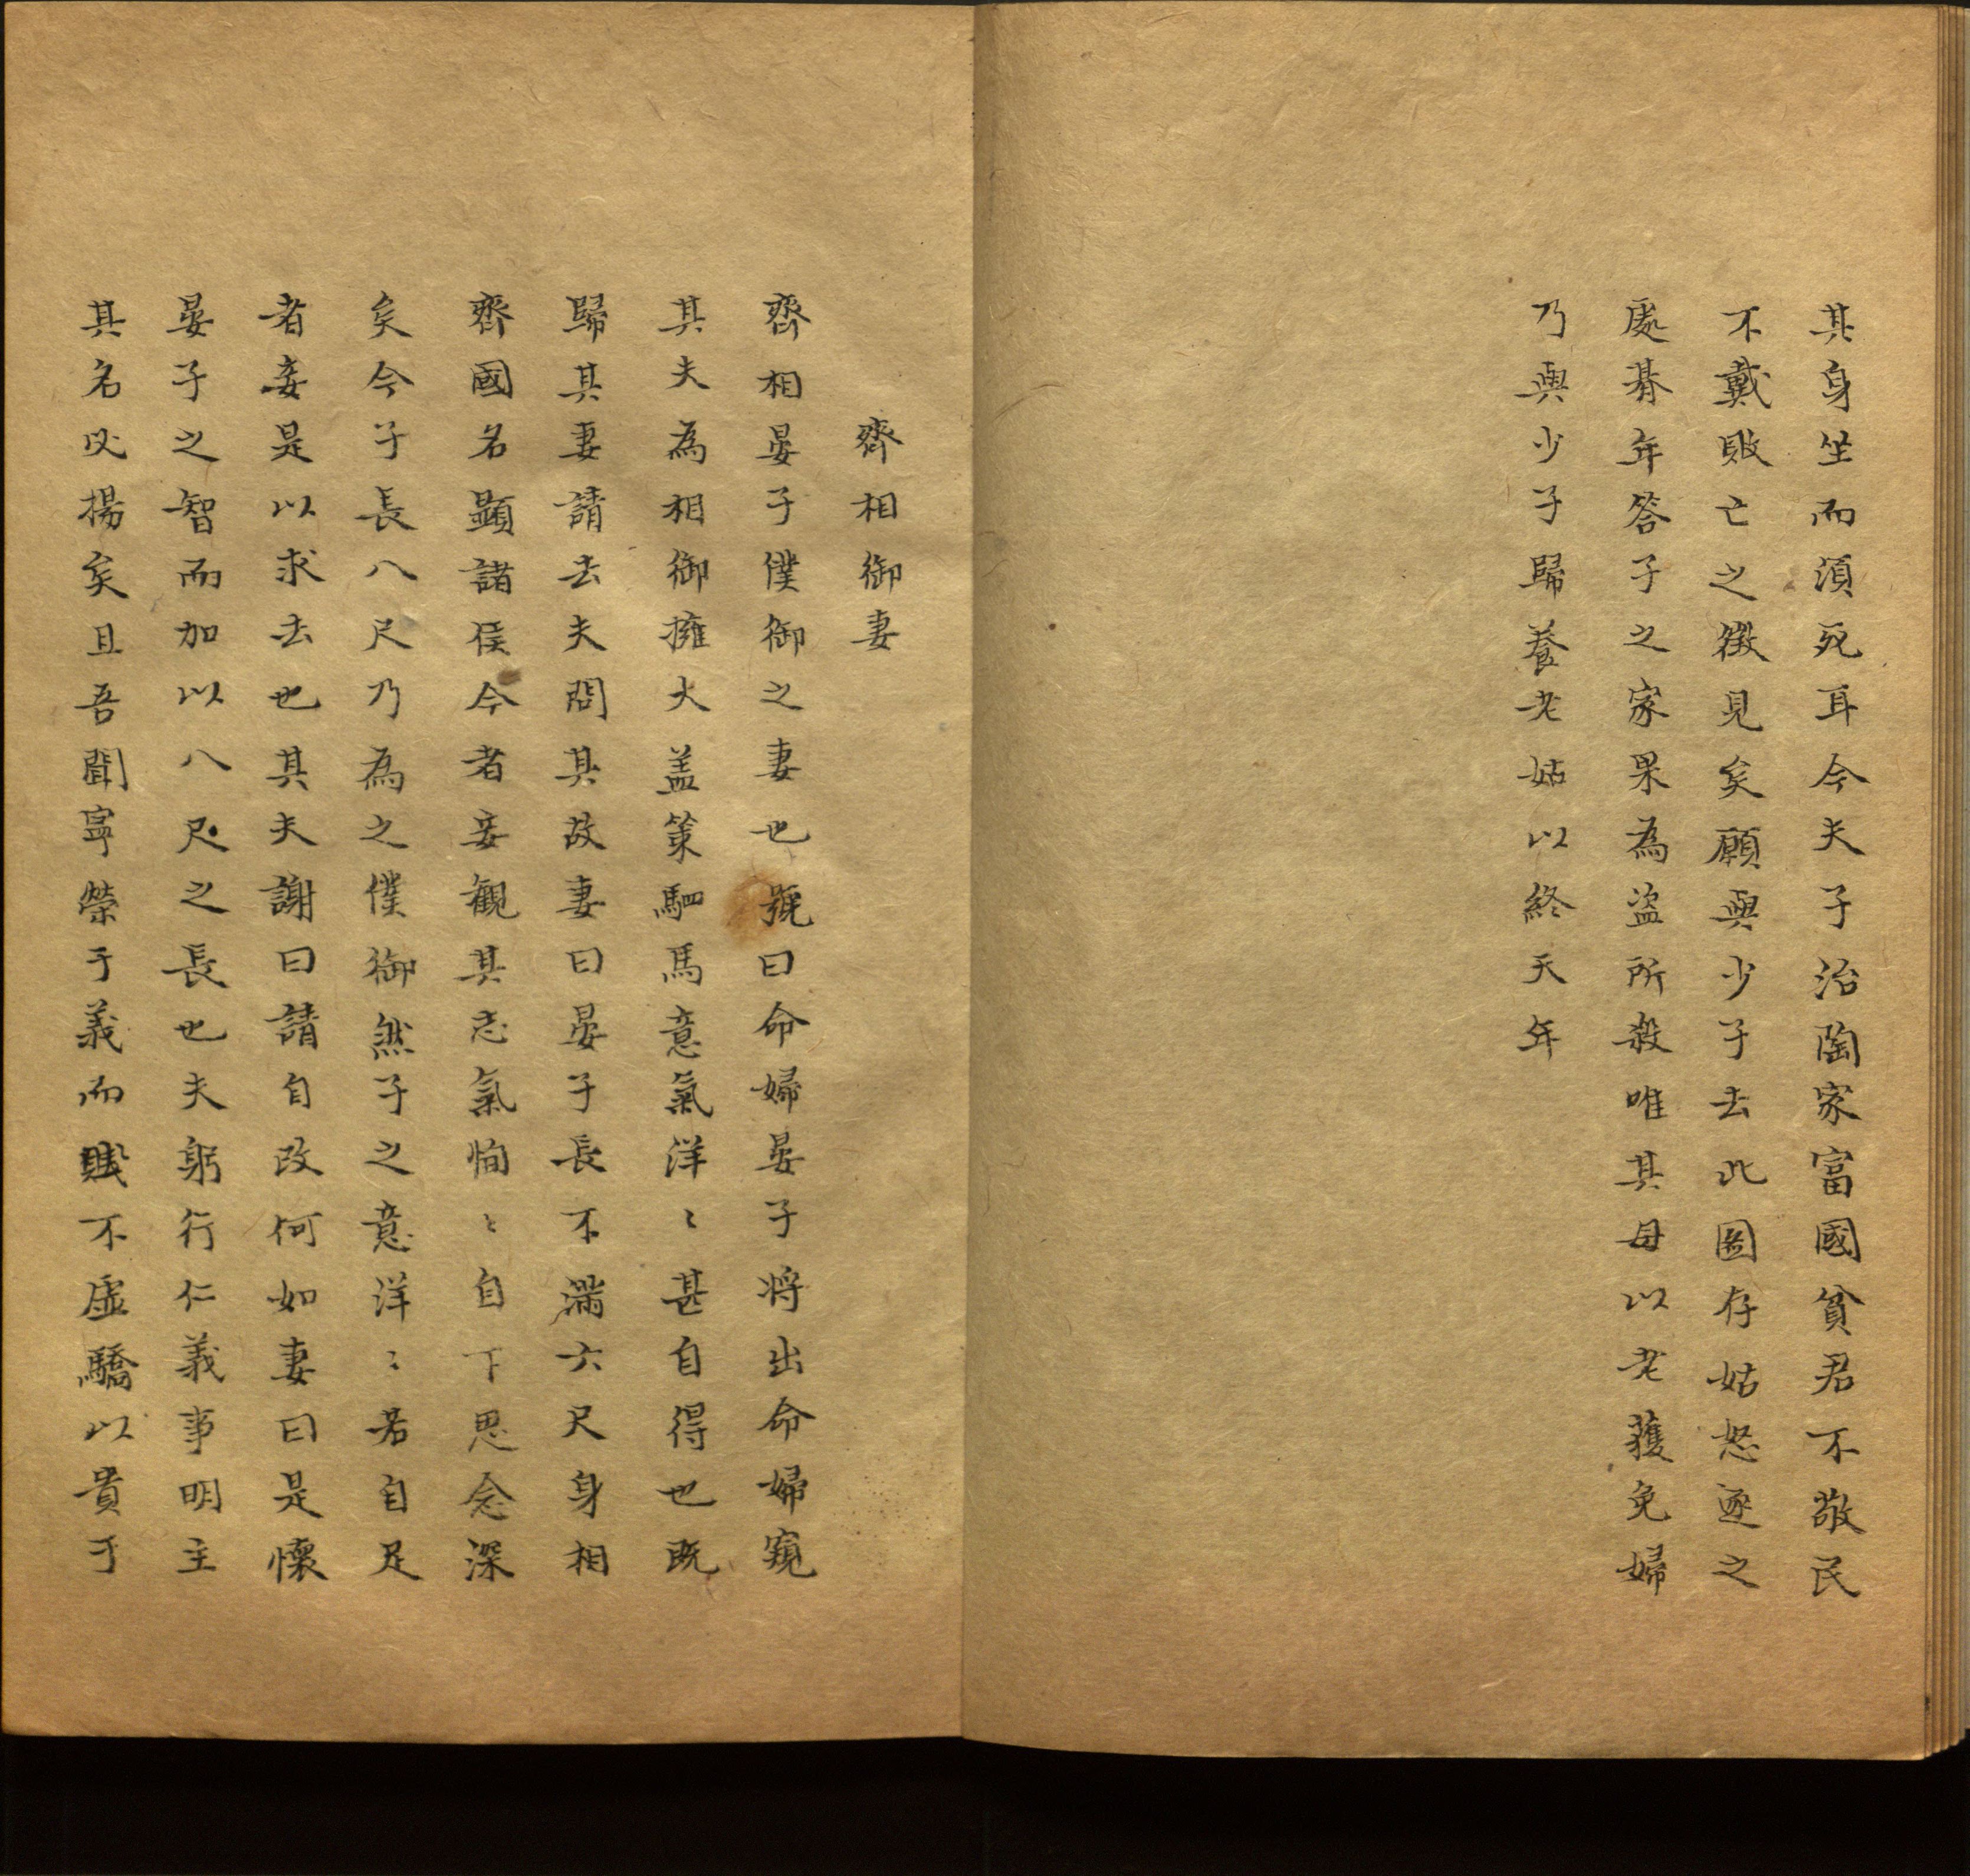 其身坐而須死耳今夫子治陶家富國貧君不敬民
不戴敗亡之徵見矣願與少子去此圖存姑怒逐之
處朞年答子之家果為盜所殺唯其母以老獲免婦
乃與少子歸養老姑以終天年
齊相御妻
齊相晏子僕御之妻也號曰命婦晏子將出命婦窺
其夫為相御擁大盖策駟馬意氣洋〻甚自得也既
歸其妻請去夫問其故妻曰晏子長不滿六尺身相
齊國名顯諸侯今者妾觀其志氣恂〻自下思念深
矣今子長八尺乃為之僕御然子之意洋〻若自足
者妾是以求去也其夫謝曰請自改何如妻曰是懷
晏子之智而加以八尺之長也夫躬行仁義事明主
其名必揚矣且吾聞寧榮于義而賤不虛驕以貴于